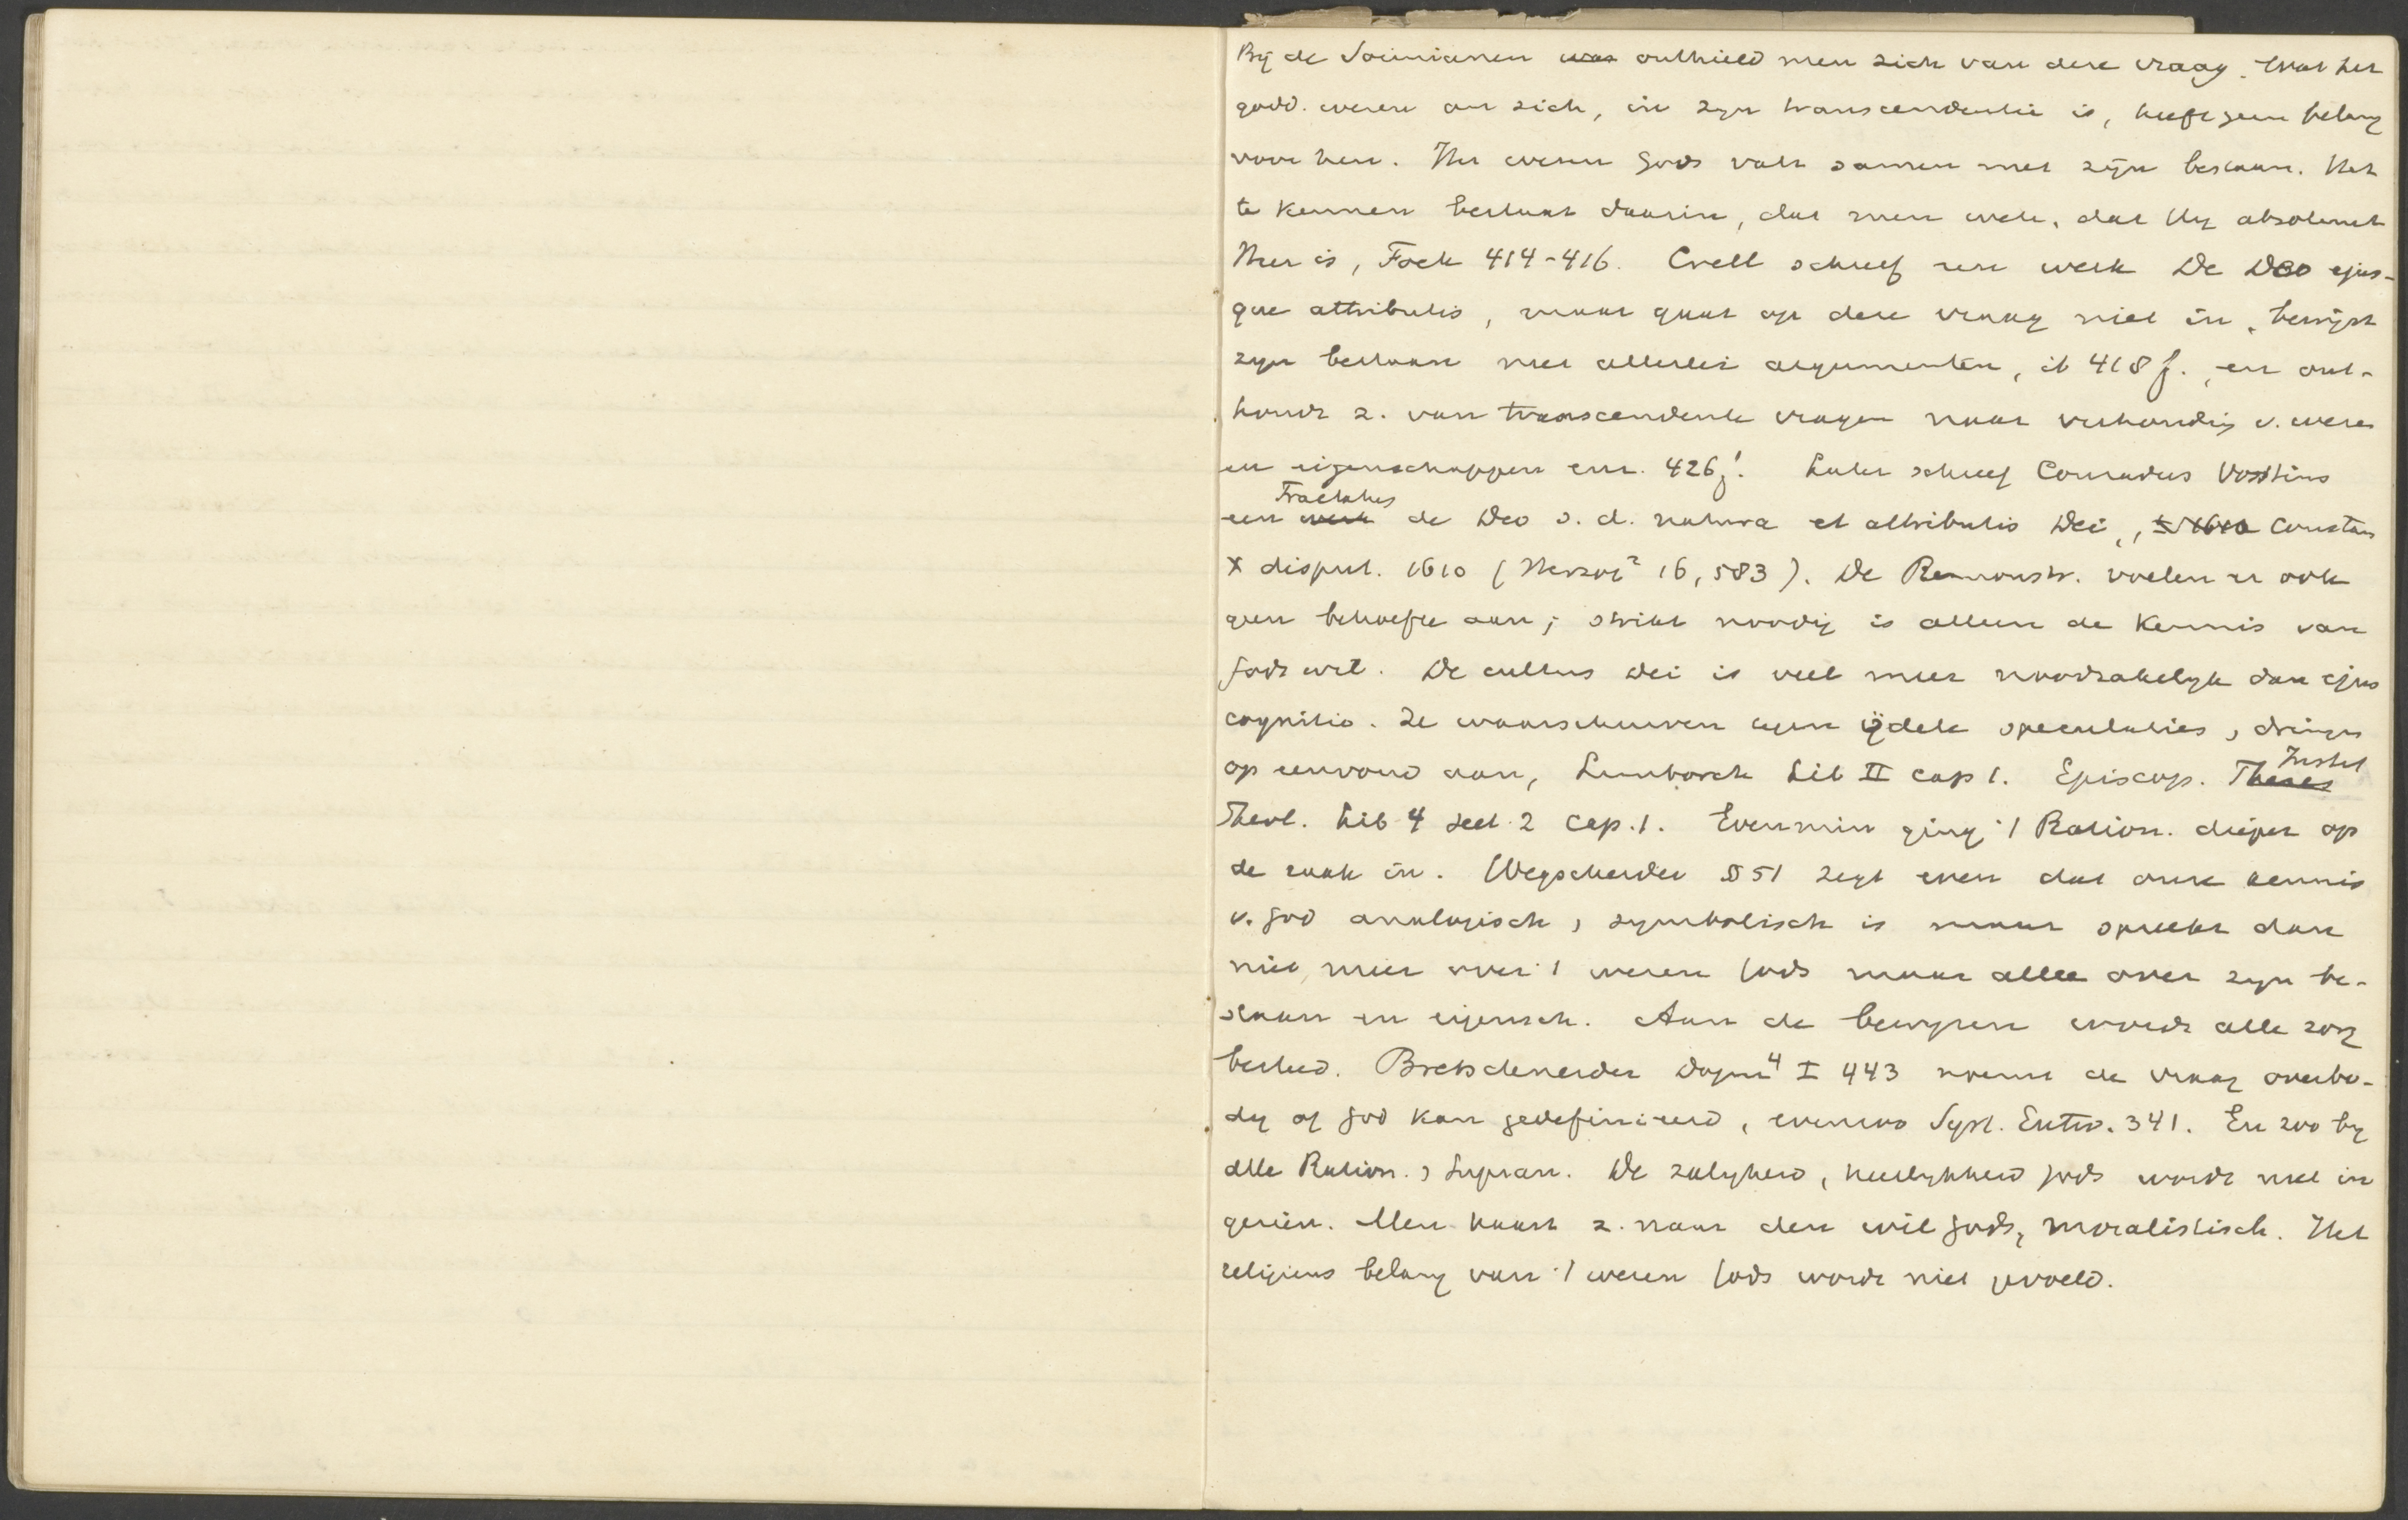 Bij de Socinianen was onthield men zich van deze vraag. Wat het
godd. wezen an sich, in zijn transcendentie is, heeft geen belang
voor hen. Het wezen Gods valt samen met zijn bestaan. Het
te kennen bestaat daarin, dat men wete, dat Hij absoluut
Heer is, Fock 414-416. Crell schreef een werk De Deo ejus-
que attributis, maar gaat op deze vraag niet in, bewijst
zijn bestaan met allerlei argumenten, ib 418 f., en ont-
houdt z. van transcendente vragen naar verhouding v. wezen
en eigenschappen enz. 426 f. Later schreef Conradus Vorstius
een werk Tractatus de Deo s. d. natura et attributis Dei, 1610 Constans
X disput. 1610 (Herzog² 16, 583). De Remonstr. voelen er ook
geen behoefte aan; strikt noodig is alleen de kennis van
Gods wil. De cultus Dei is veel meer noodzakelijk dan ejus
cognitio. Ze waarschuwen tegen ijdele speculaties, dringen
op eenvoud aan, Limborch Lib II cap 1. Episcop. Theses Instit
Theol. Lib 4 sect 2 cap. 1. Evenmin ging 't Ration. dieper op
de zaak in. Wegscheider § 51 zegt even dat onze kennis
v. God analogisch, symbolisch is maar spreekt dan
niet meer over 't wezen Gods maar allee over zijn be-
staan en eigensch. Aan de bewijzen wordt alle zorg
besteed. Bretschneider Dogm⁴ I 443 noemt de vraag overbo-
dig of God kan gedefinieerd, evenzoo Syst. Entw. 341. En zoo bij
alle Ration., Supran. De zaligheid, heerlijkheid Gods wordt niet in
gezien. Men haast z. naar den wil Gods, moralistisch. Het
religieus belang van 't wezen Gods wordt niet gevoeld.